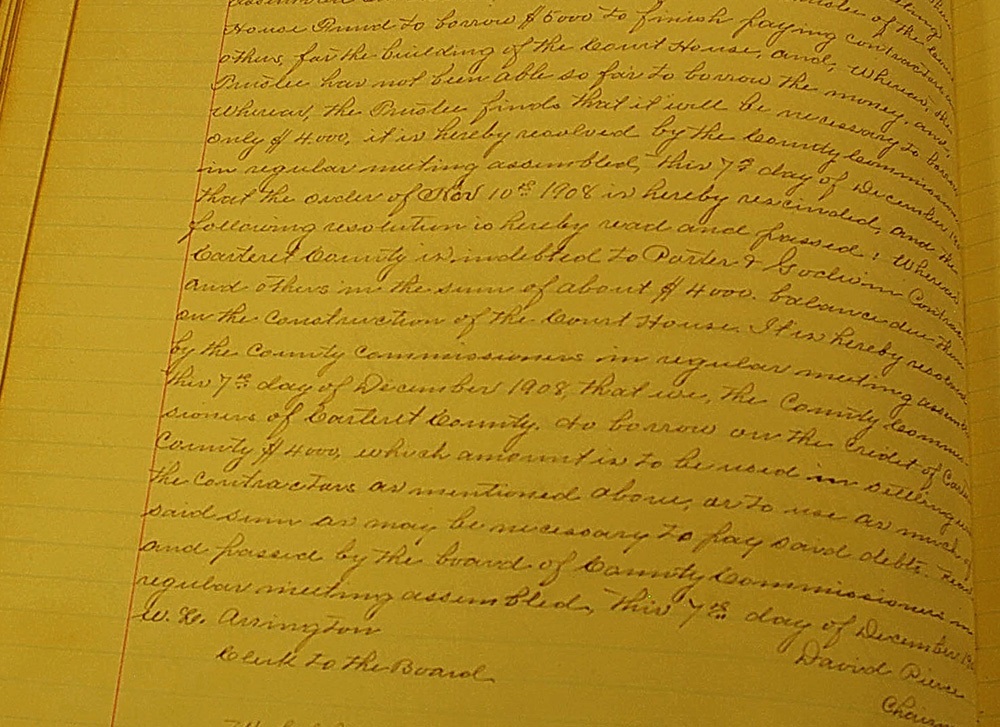 House Fund to borrow $5000 to finish paying contractors
others, for the building of the Court House, and, Whereas, the
Trustee has not been able so far to borrow the money, and,
Whereas, the Trustee finds that it will be necessary to borrow
only $4000, it is hereby resolved by the County Commissioners
in regular meeting assembled, this 7th day of December
that the order of Nov 10th 1908 is hereby rescinded, and the
following resolution is hereby read and passed: Whereas
Carteret County is indebted to Porter & Godwin Contrac
and others in the sum of about $4000. balance due them
on the construction of the Court House. It is hereby resolved
by the County Commissioners in regular meeting assemb
this 7th day of December 1908, that we, the County Commis
sioners of Carteret County, do borrow on the credit of Carte
County $4000, which amount is to be used in settling
the contractors as mentioned above, or to use as much of
said sum as may be necessary to pay said debts. Read
and passed by the board of County Commissioners in
regular meeting assembled, this 7th day of December
W. L. Arrington
Clerk to the Board
David Pierce
Chairm